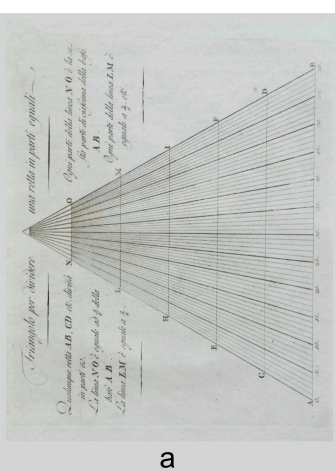 Triangolo per dividere una retta in parti eguali
Qualunque retta AB, CD etc. divisa
in parti 60.
La linea NO è eguale ad 1/6 della
base AB.
La linea LM è eguale a 2/6.
Ogni parte della linea NO è la se-
sta parte di ciascuna della base
AB.
Ogni parte della linea LM è
eguale a 2/6 etc.
N
O
L
M
H
I
E
F
C
D
A
B
a